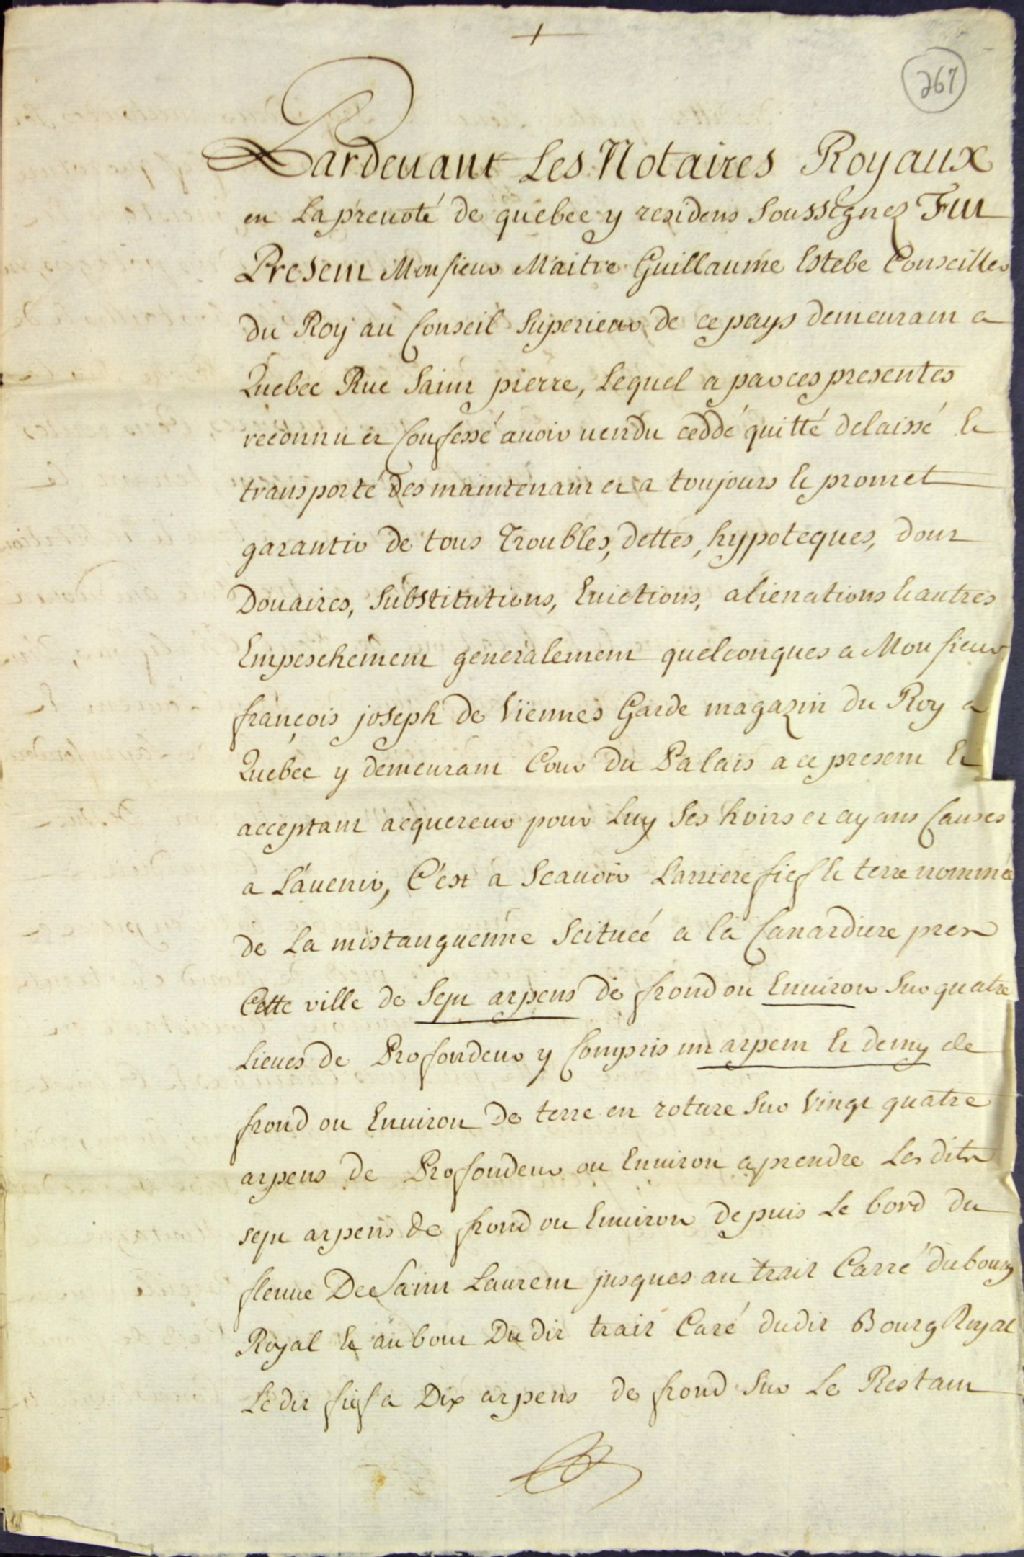 267
Pardevant Les Notaires Royaux
en La prevoté de quebec y residens Soussignez Fut
Present Monsieur Maitre Guillaume Estebe Conseiller
du Roy au Conseil Superieur de ce pays demeurant a
Quebec Rue Saint pierre, Lequel a par ces presentes
reconnu et Confessé avoir vendu ceddé quitté delaissé Et
transporté des maintenant et a toujours Et promet
garantir de tous Troubles, dettes, hypoteques, dons
Douaires, Substitutions, Evictions, alienations Et autres
Empeschement generalement quelconques a Monsieur
françois joseph de Viennes Garde magazin du Roy a
Quebec y demeurant Cour du Palais a ce present Et
acceptant acquereur pour Luy Ses hoirs et ayans Causes
a L'avenir, C'est a Scavoir Larriere fief Et terre nommé
de La mistanguenne Scitucé a la Canardiere pres
Cette ville de Sept arpens de frond ou Environ Sur quatre
Lieues de Profondeur y Compris un arpent Et demy de
frond ou Environ De terre en roture Sur Vingt quatre
arpens de Profondeur ou Environ a prendre Les dits
sept arpens de frond ou Environ depuis Le bord du
fleuve De Saint Laurent jusques au trait Carré du bourg
Royal Et au bout Du dit trait Caré dudit Bourg Royal
Ledit fief a Dix arpens de frond Sur Le Restant